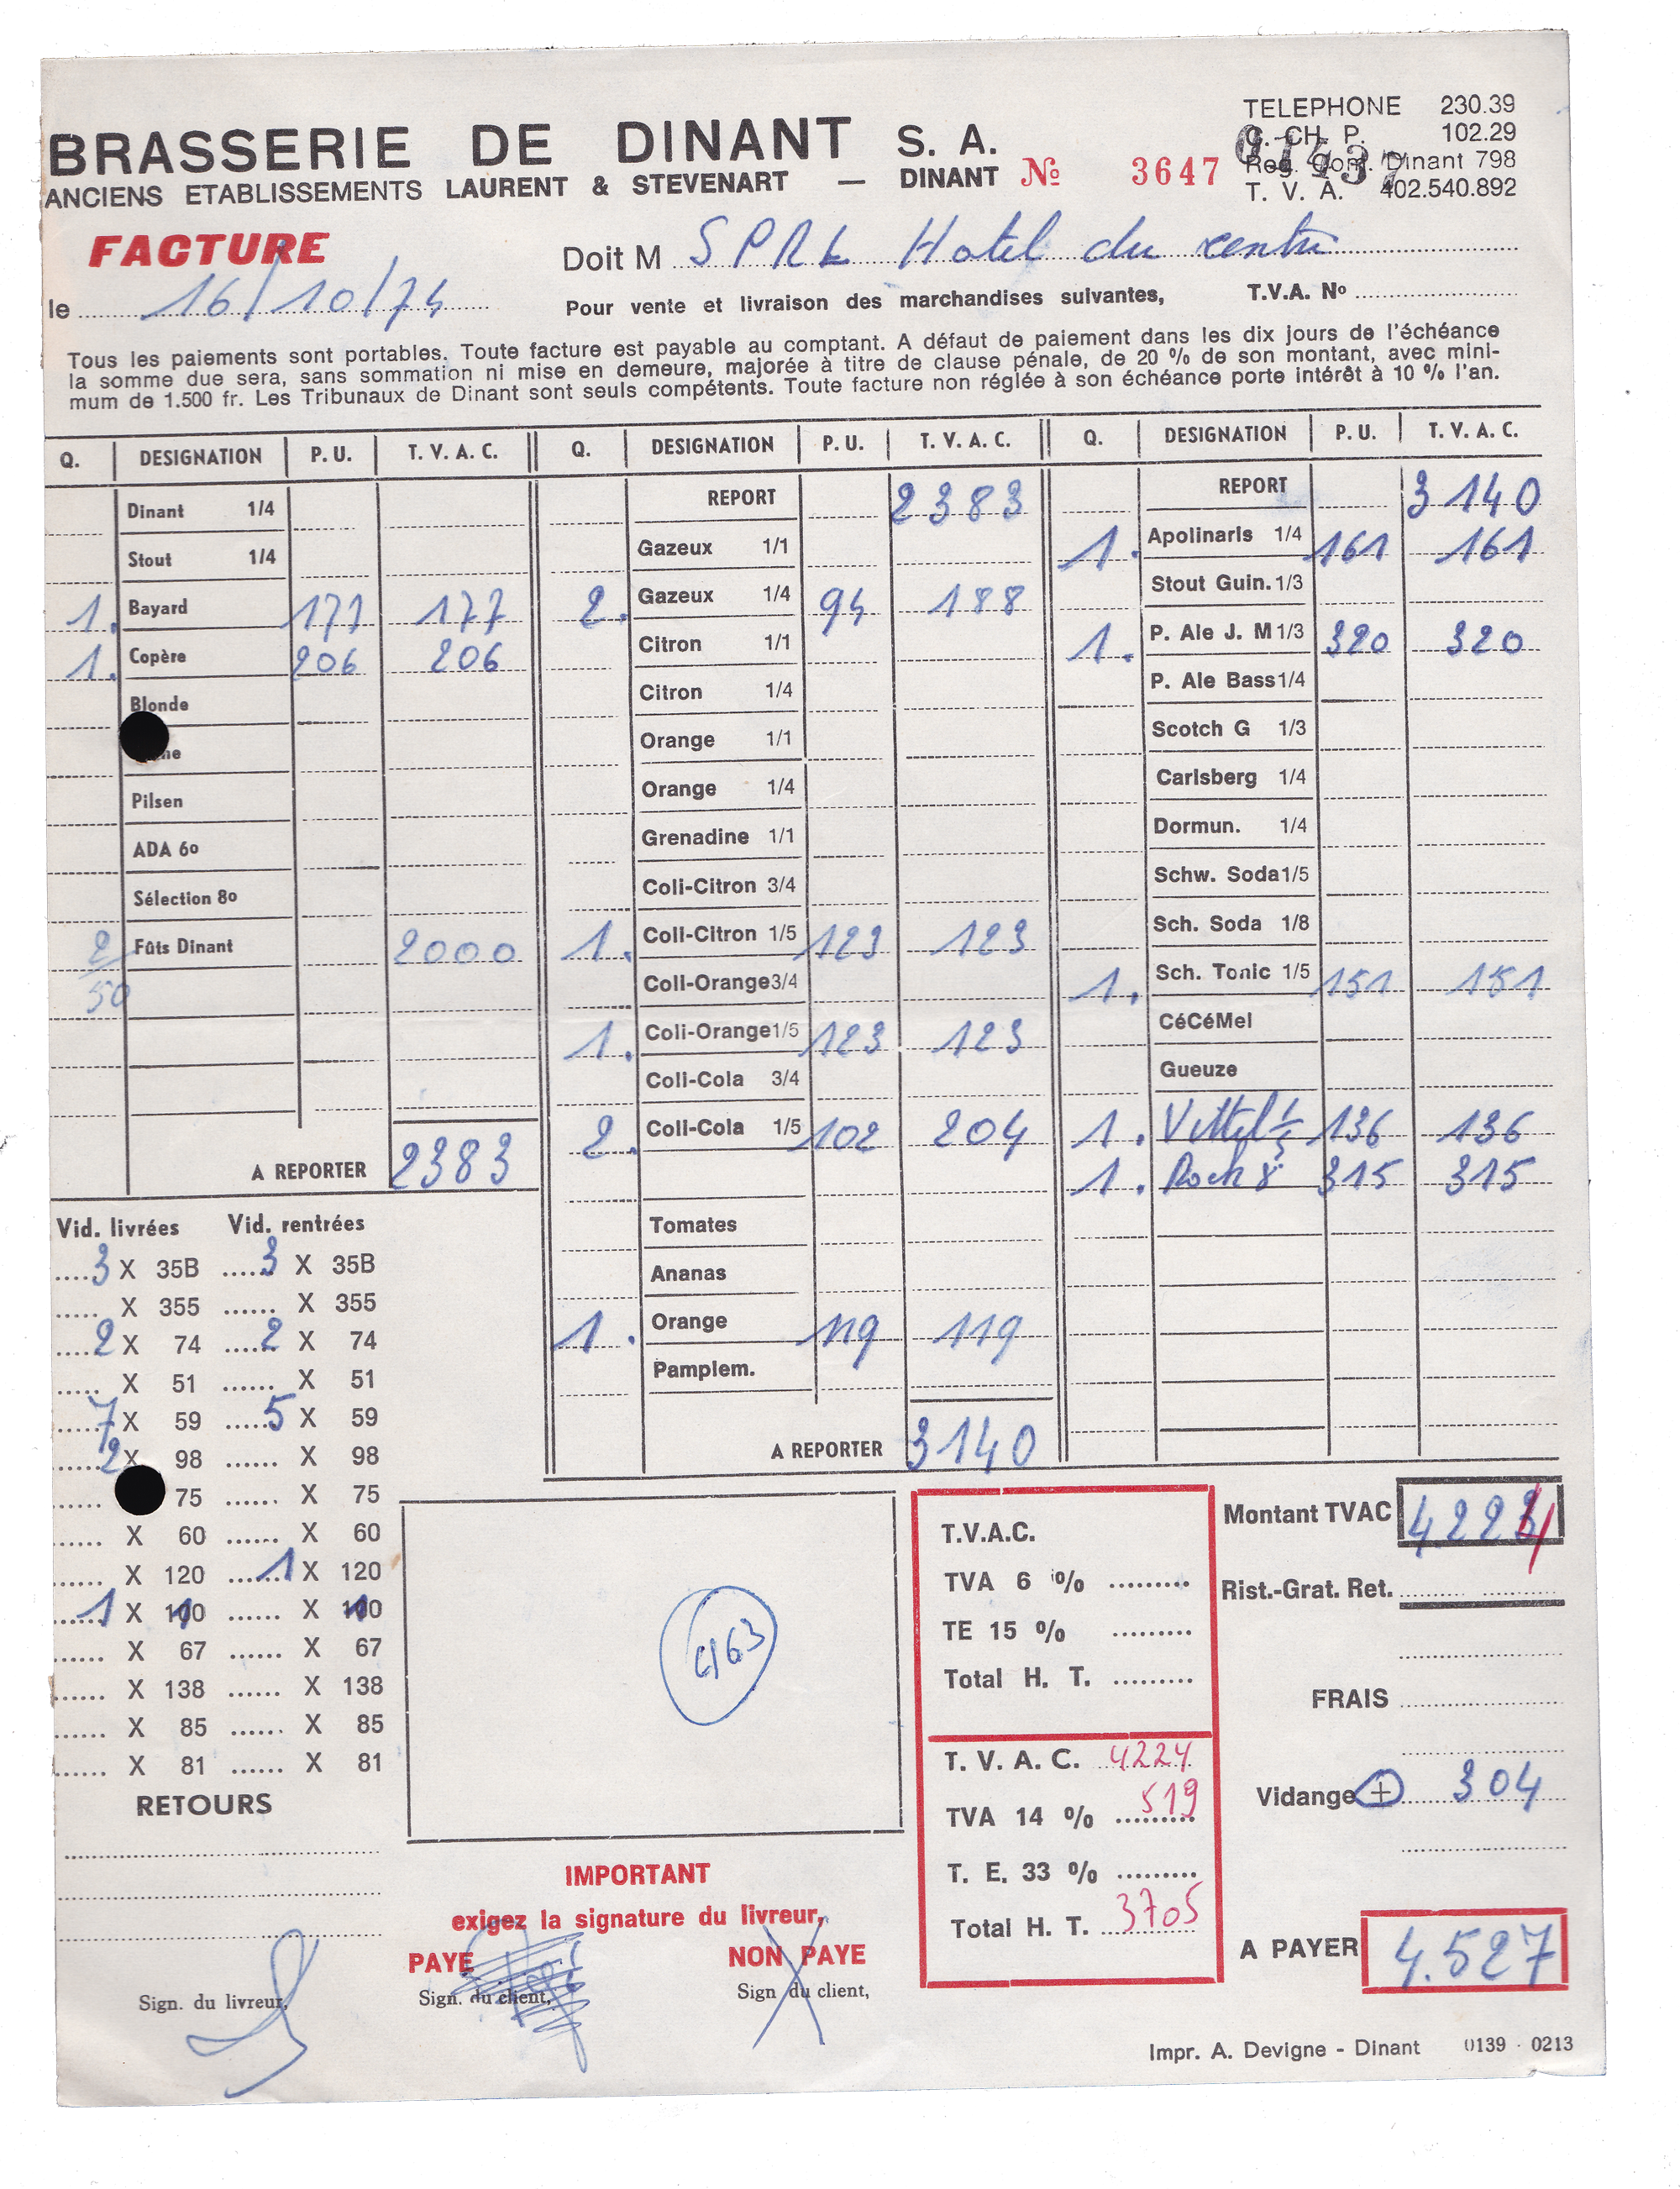 TELEPHONE 230.39
BRASSERIE DE DINANT S. A.
C. CH. P. 102.29
Reg. Com. Dinant 798
ANCIENS ETABLISSEMENTS LAURENT & STEVENART — DINANT No 3647
T. V. A. 402.540.892
FACTURE
Doit M SPRL Hotel du centre
le 16/10/74
Pour vente et livraison des marchandises suivantes, T.V.A. No
Tous les paiements sont portables. Toute facture est payable au comptant. A défaut de paiement dans les dix jours de l'échéance
la somme due sera, sans sommation ni mise en demeure, majorée à titre de clause pénale, de 20 % de son montant, avec mini-
mum de 1.500 fr. Les Tribunaux de Dinant sont seuls compétents. Toute facture non réglée à son échéance porte intérêt à 10 % l'an.
Q. DESIGNATION P. U. T. V. A. C.
Dinant 1/4
Stout 1/4
1. Bayard 177 177
1. Copère 206 206
Blonde
Pilsen
ADA 6o
Sélection 8o
2/50 Fûts Dinant 2000
A REPORTER 2383
Q. DESIGNATION P. U. T. V. A. C.
REPORT 2383
Gazeux 1/1
2. Gazeux 1/4 94 188
Citron 1/1
Citron 1/4
Orange 1/1
Orange 1/4
Grenadine 1/1
Coli-Citron 3/4
1. Coli-Citron 1/5 123 123
Coli-Orange 3/4
1. Coli-Orange 1/5 123 123
Coli-Cola 3/4
2. Coli-Cola 1/5 102 204
Tomates
Ananas
1. Orange 119 119
Pamplem.
A REPORTER 3140
Q. DESIGNATION P. U. T. V. A. C.
REPORT 3140
1. Apolinaris 1/4 161 161
Stout Guin. 1/3
1. P. Ale J. M 1/3 320 320
P. Ale Bass 1/4
Scotch G 1/3
Carlsberg 1/4
Dormun. 1/4
Schw. Soda 1/5
Sch. Soda 1/8
1. Sch. Tonic 1/5 151 151
CéCéMel
Gueuze
1. Vittel 136 136
1. Roch 8 315 315
Vid. livrées Vid. rentrées
3 X 35B 3 X 35B
X 355 X 355
2 X 74 2 X 74
X 51 X 51
7 X 59 5 X 59
2 X 98 X 98
75 X 75
X 60 X 60
X 120 1 X 120
1 X 100 X 100
X 67 X 67
X 138 X 138
X 85 X 85
X 81 X 81
RETOURS
4163
T.V.A.C.
TVA 6 %
TE 15 %
Total H. T.
T. V. A. C. 4224
TVA 14 % 519
T. E. 33 %
Total H. T. 3705
Montant TVAC 4224
Rist.-Grat. Ret.
FRAIS
Vidange + 304
A PAYER 4.527
IMPORTANT
exigez la signature du livreur,
PAYE NON PAYE
Sign. du livreur, Sign. du client, Sign du client,
Impr. A. Devigne - Dinant 0139 - 0213